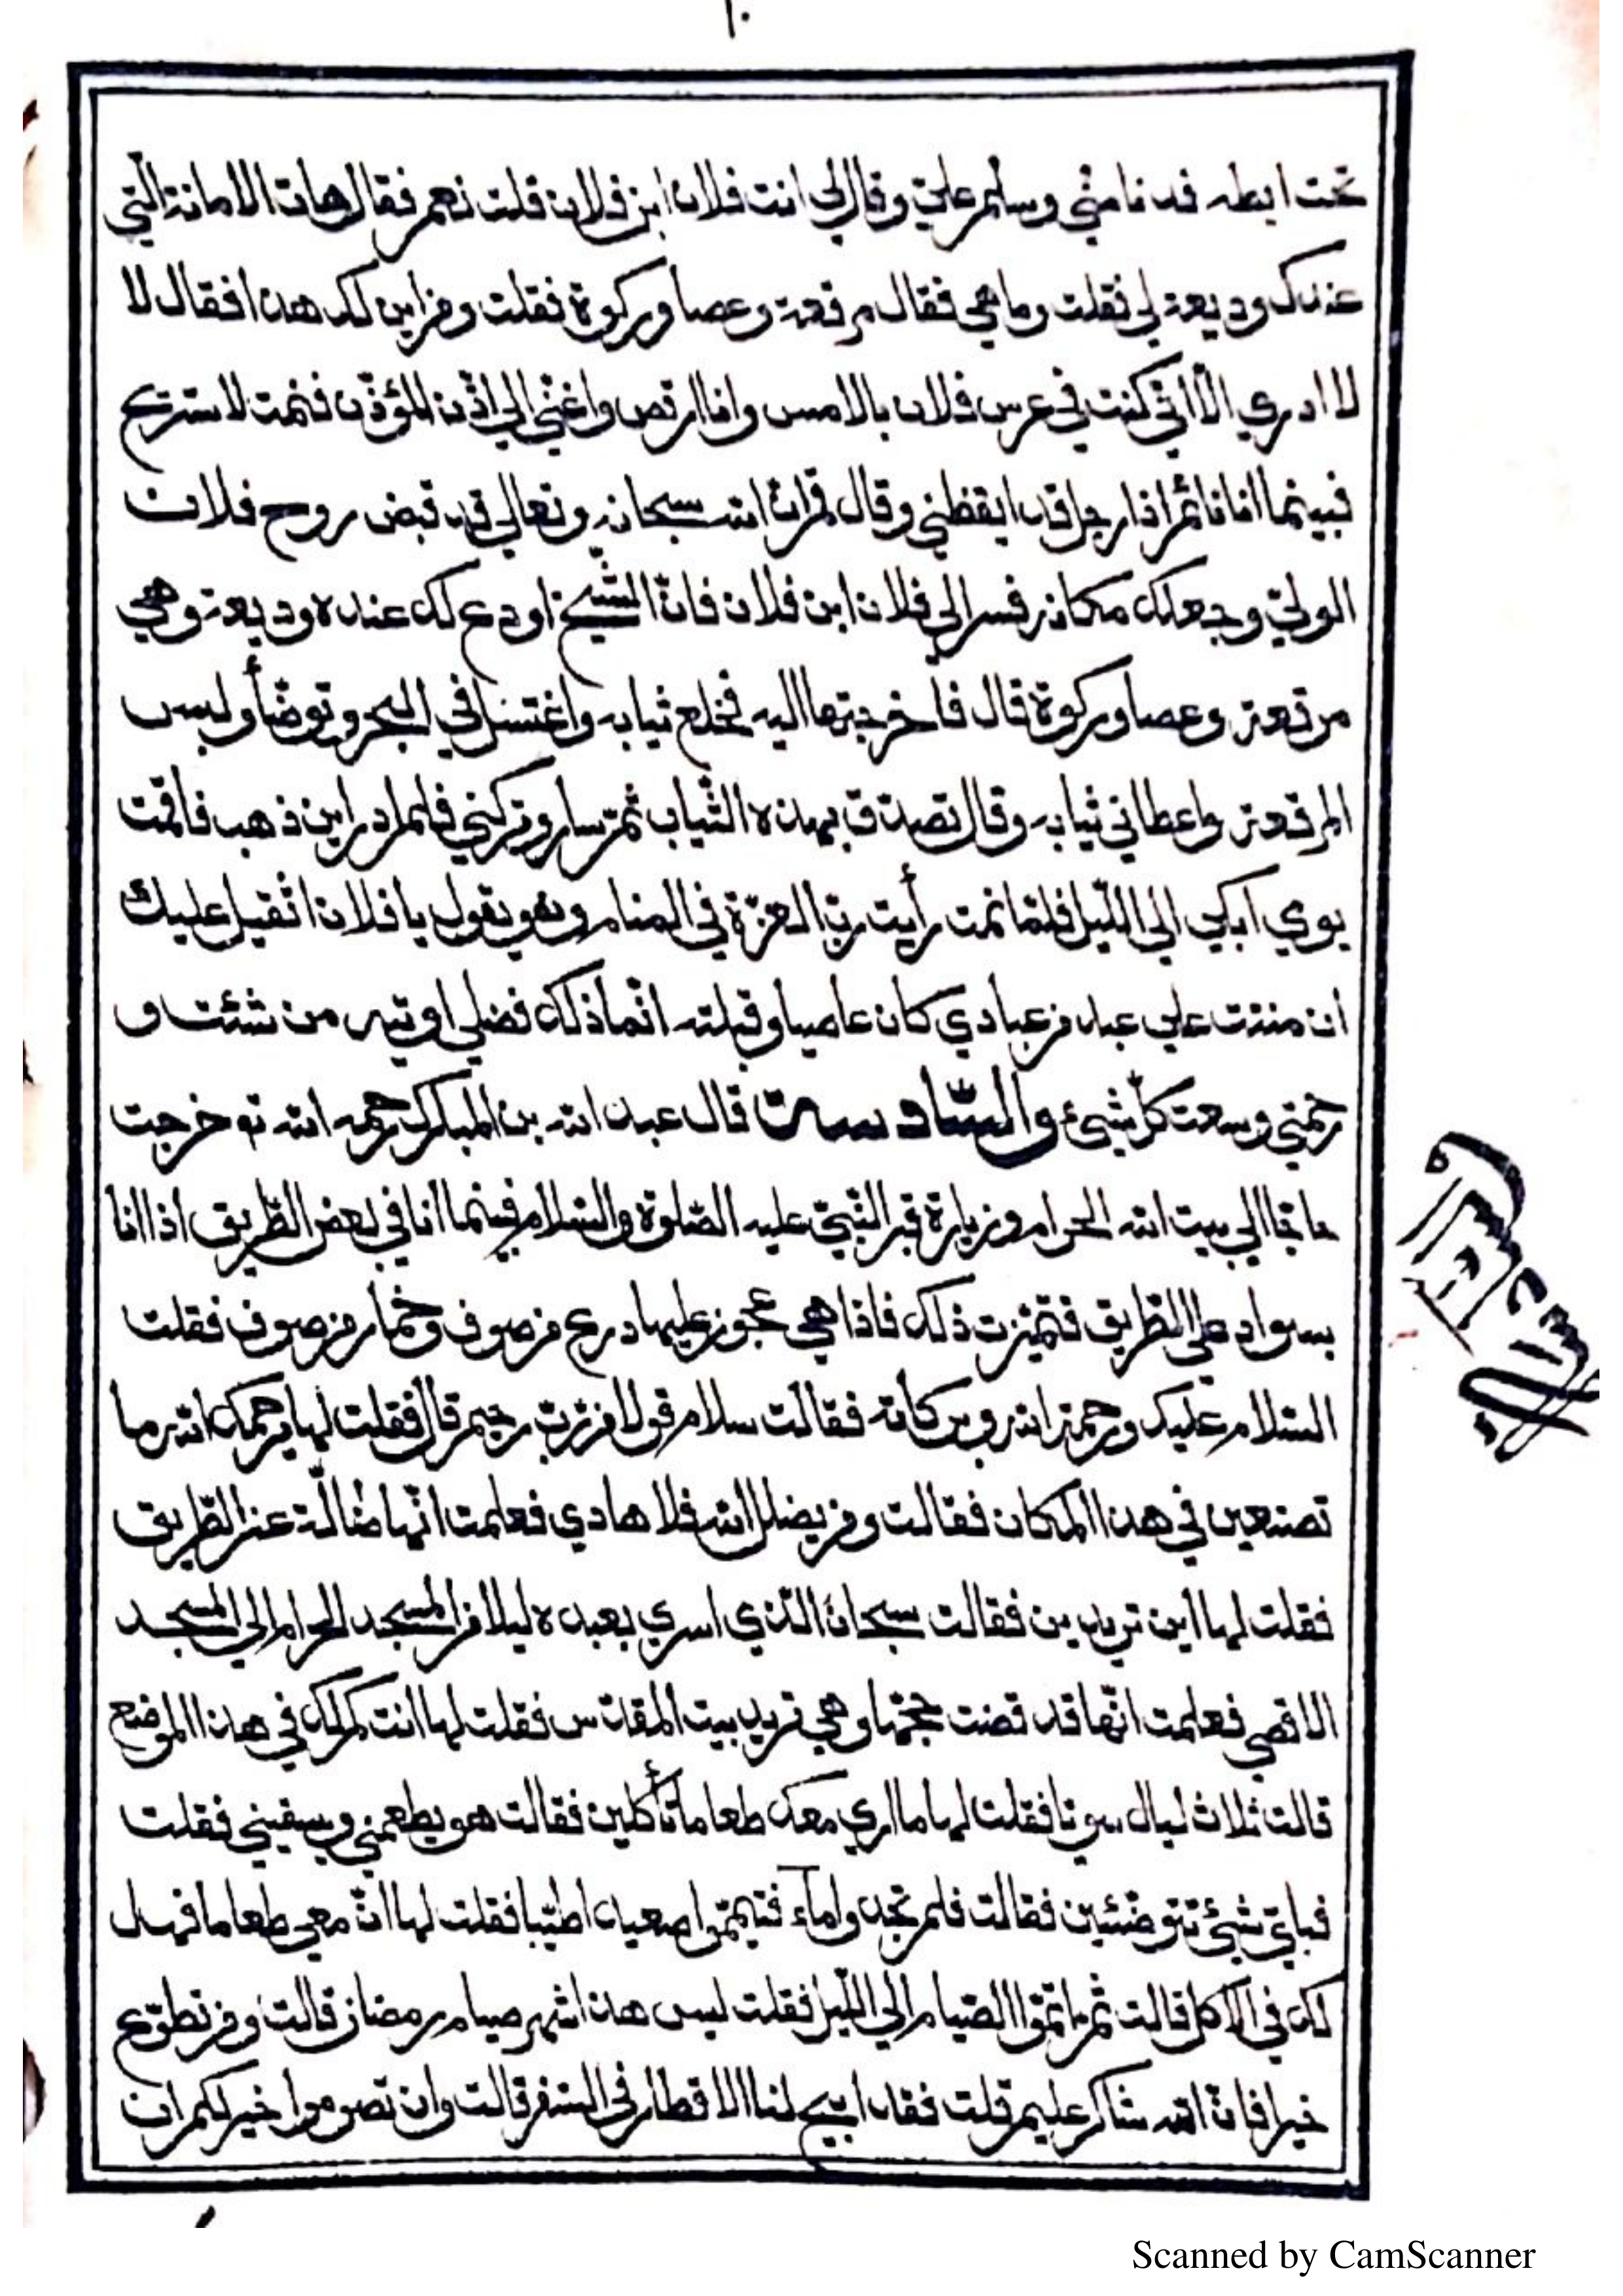 ١٠
تحت ابطه فدنا منّي وسلّم عليّ وقال لي انت فلان ابن فلان قلت نعم فقال هات الامانة الّتي
عندك وديعة لي فقلت وما هي فقال مرقعة وعصا وركوة فقلت ومن اين لك هذا فقال لا
لا ادري الّا انّي كنت في عرس فلان بالامس وانا ارقص واغنّي الي اذّن المؤذّن فنمت لاستريح
فبينما انا نائم اذا رجل قد ايقظني وقال قم انّ الله سبحانه وتعالي قد قبض روح فلان
الوليّ وجعلك مكانه فسر الي فلان ابن فلان فانّ الشّيخ اودع لك عنده وديعة وهي
مرقعة وعصا وركوة قال فأخرجتها اليه فخلع ثيابه واغتسل في البحر وتوضّأ ولبس
المرقعة واعطاني ثيابه وقال تصدّق بهذه الثّياب ثمّ سار وتركني فلم ادر اين ذهب فاقمت
يومي ابكي الي اللّيل فلمّا نمت رأيت ربّ العزّة في المنام وهو يقول يا فلان اثقيل عليك
ان مننت علي عبد من عبادي كان عاصيا وقبلته انّما ذلك فضلي اوتيه من شئت و
رحمتي وسعت كلّ شيئ والسّادسة قال عبد الله بن المبارك رحمه الله تع خرجت
حاجّا الي بيت الله الحرام وزيارة قبر النّبيّ عليه الصّلوة والسّلام فبينما انا في بعض الطّريق اذا انا
بسواد علي الطّريق فتميّزت ذلك فاذا هي عجوز عليها درع من صوف وخمار من صوف فقلت
السّلام عليك ورحمة الله وبركاته فقالت سلام قولا من ربّ رحيم قال فقلت لها يرحمك الله ما
تصنعين في هذا المكان فقالت ومن يضلل الله فلا هادي فعلمت انّها ضالّة عن الطّريق
فقلت لها اين تريدين فقالت سبحان الّذي اسري بعبده ليلا من المسجد الحرام الي المسجد
الاقصي فعلمت انّها قد قضت حجّها وهي تريد بيت المقدّس فقلت لها انت كم لك في هذا الموضع
قالت ثلاث ليال سويا فقلت لها ما اري معك طعاما تأكلين فقالت هو يطعمني ويسقيني فقلت
فبايّ شيئ تتوضّئين فقالت فلم تجدوا مآء فتيمّموا صعيدا طيّبا فقلت لها انّ معي طعاما فهل
لك في الاكل قالت ثمّ اتمّوا الصّيام الي اللّيل فقلت ليس هذا شهر صيام رمضان قالت ومن تطوّع
خيرا فانّ الله شاكر عليم قلت فقد ابيح لنا الافطار في السّفر قالت وان تصوموا خير لكم ان